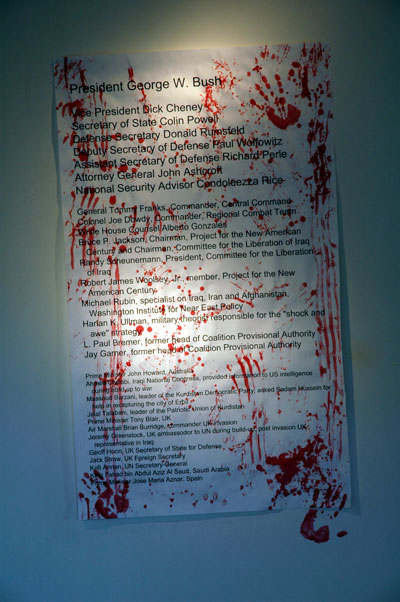 President George W. Bush
Vice President Dick Cheney
Secretary of State Colin Powell
Defense Secretary Donald Rumsfeld
Deputy Secretary of Defense Paul Wolfowitz
Assistant Secretary of Defense Richard Perle
Attorney General John Ashcroft
National Security Advisor Condoleezza Rice
General Tommy Franks, Commander, Central Command
Colonel Joe Dowdy, Commander, Regional Combat Team
White House Counsel Alberto Gonzales
Bruce P. Jackson, Chairman, Project for the New American
Century and Chairman, Committee for the Liberation of Iraq
Randy Scheunemann, President, Committee for the Liberation
of Iraq
Robert James Woolsey, Jr., member, Project for the New
American Century
Michael Rubin, specialist on Iraq, Iran and Afghanistan,
Washington Institute for Near East Policy
Harlan K. Ullman, military theorist responsible for the "shock and
awe" strategy
L. Paul Bremer, former head of Coalition Provisional Authority
Jay Garner, former head of Coalition Provisional Authority
Prime Minister John Howard, Australia
Ahmed Chalabi, Iraqi National Congress, provided information to US intelligence
during build-up to war
Massoud Barzani, leader of the Kurdistan Democratic Party, asked Sadam Hussein for
help in recapturing the city of Erbil
Jalal Talabani, leader of the Patriotic Union of Kurdistan
Prime Minister Tony Blair, UK
Air Marshal Brian Burridge, commander UK invasion
Jeremy Greenstock, UK ambassador to UN during build-up, post invasion UK
representative in Iraq
Geoff Hoon, UK Secretary of State for Defense
Jack Straw, UK Foreign Secretary
Kofi Annan, UN Secretary General
King Fahad bin Abdul Aziz Al Saud, Saudi Arabia
Prime Minister Jose Maria Aznar, Spain